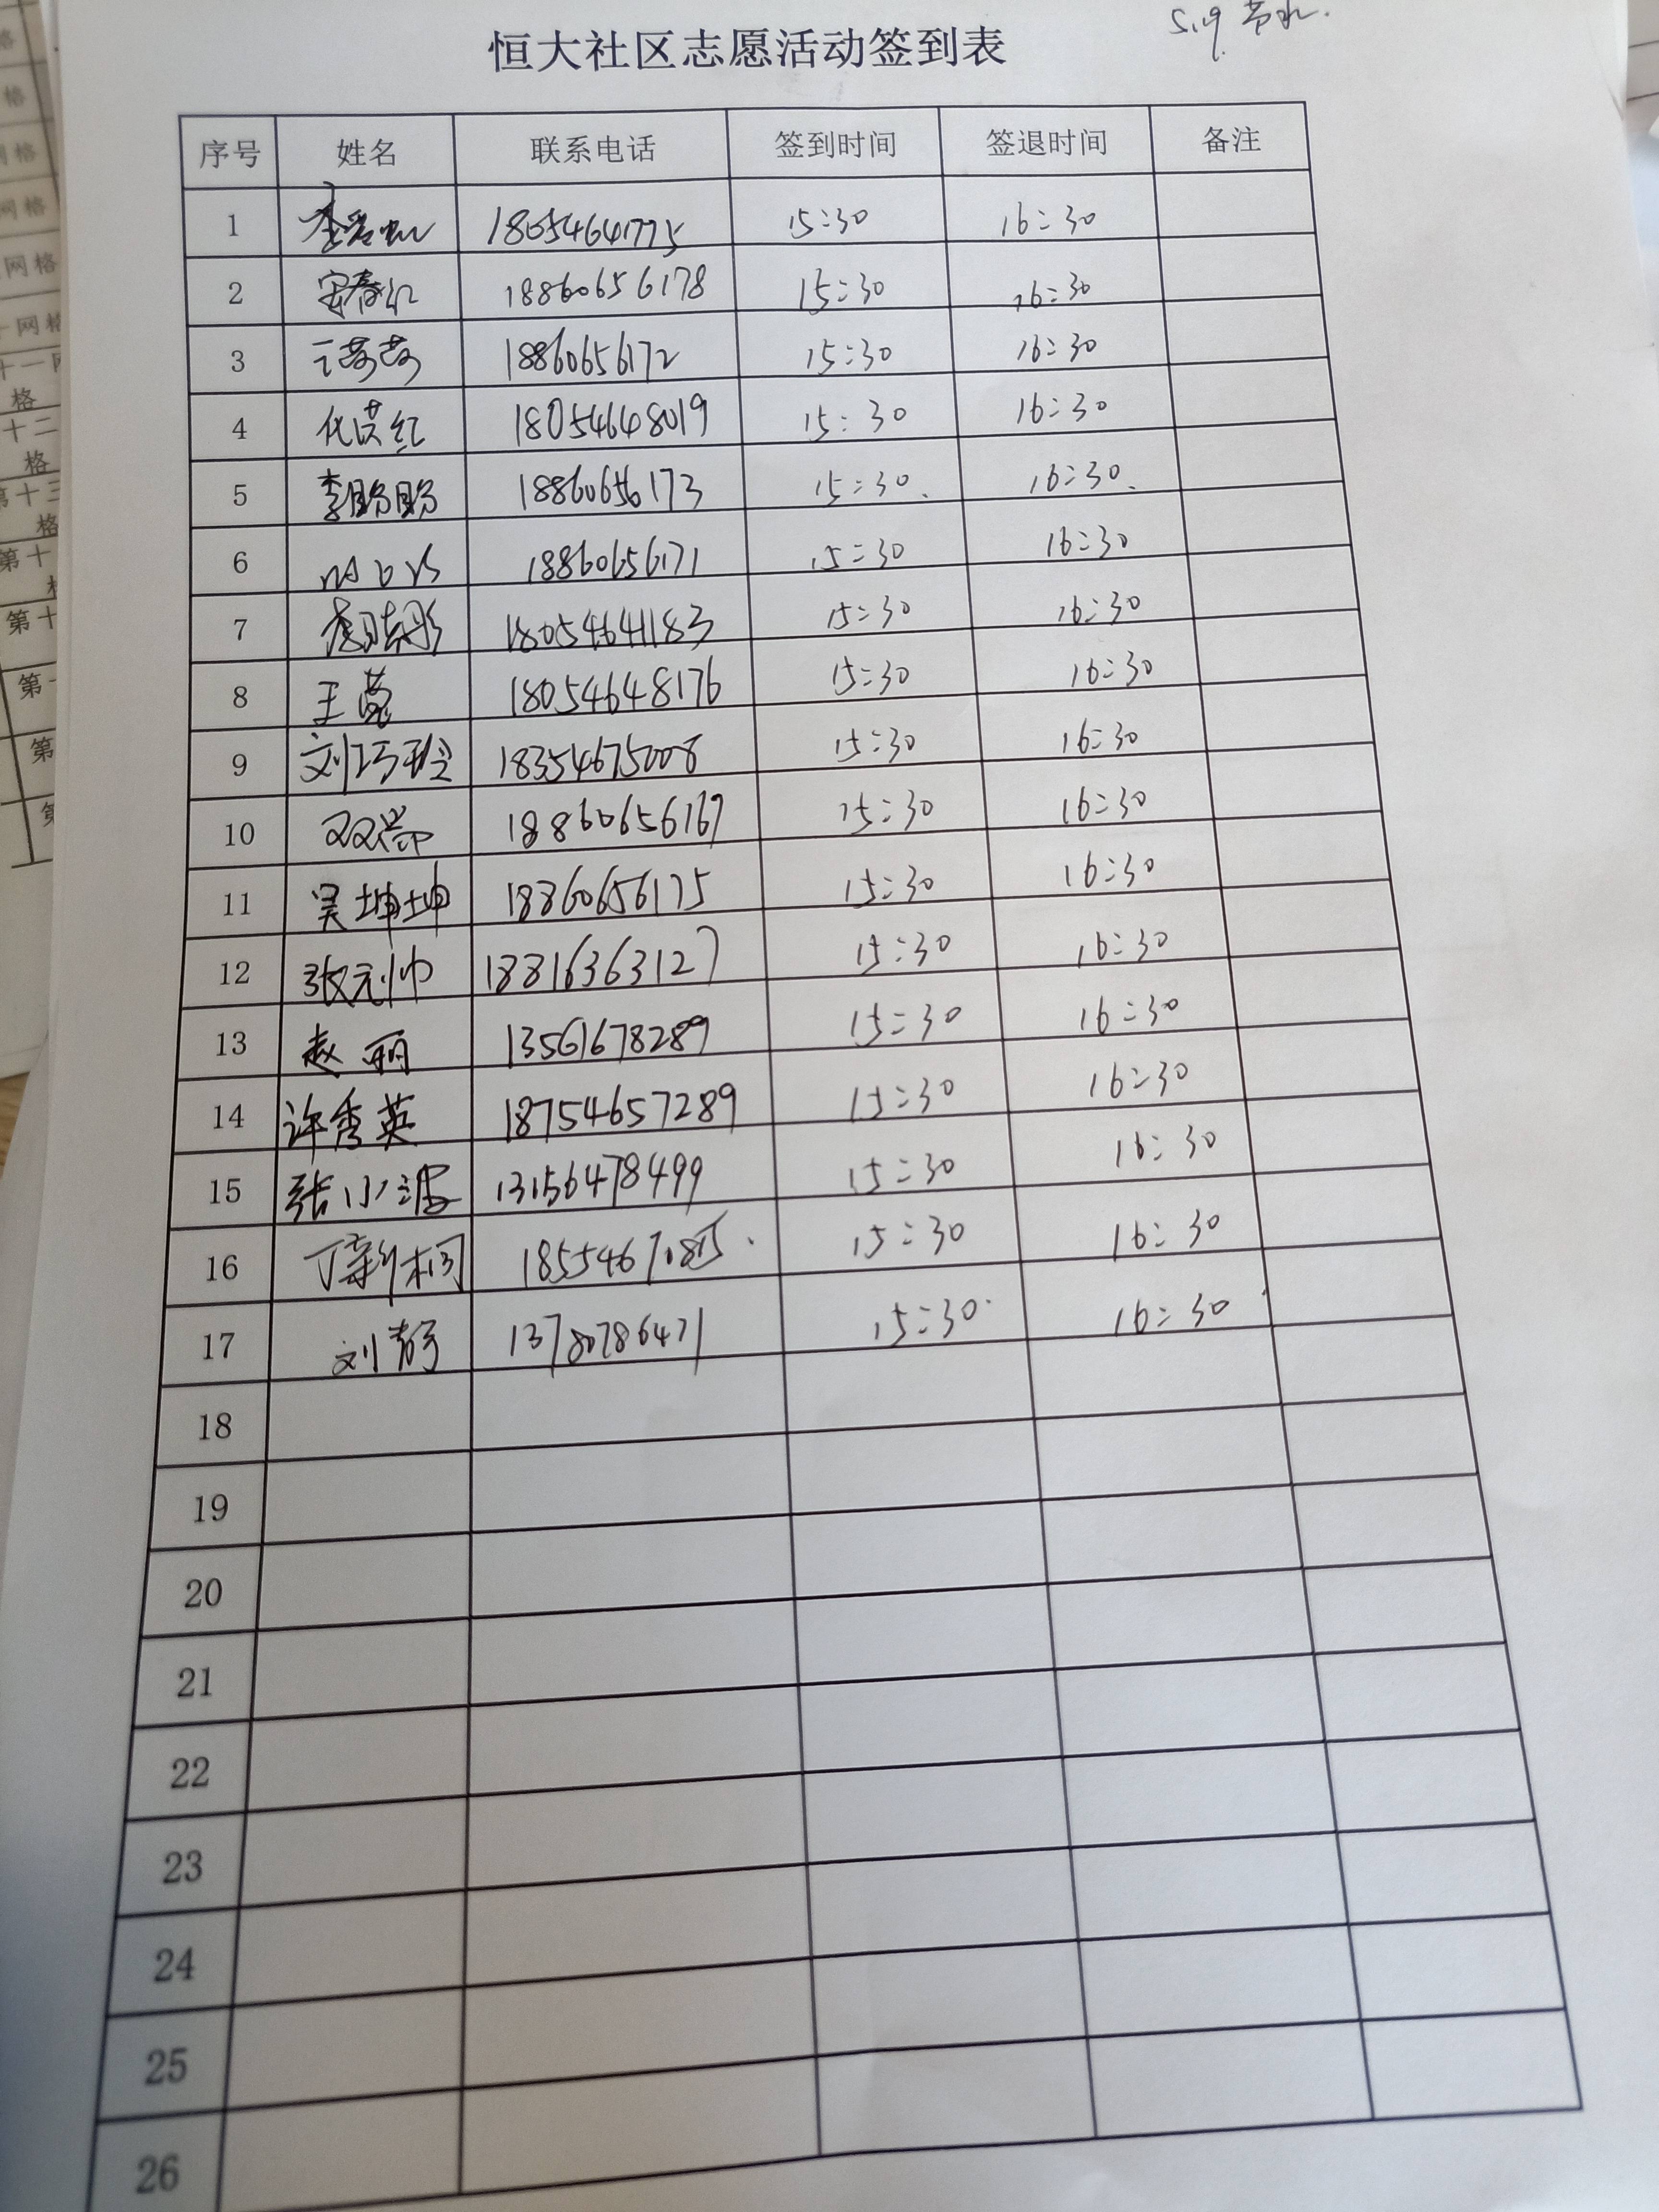 5.19 节水.
恒大社区志愿活动签到表
序号 姓名 联系电话 签到时间 签退时间 备注
1 18054641775 15:30 16:30
2 18860656178 15:30 16:30
3 18860656172 15:30 16:30
4 化洪红 18054648019 15:30 16:30
5 李盼盼 18860656173 15:30 16:30
6 18860656171 15:30 16:30
7 18054641183 15:30 16:30
8 王 18054648176 15:30 16:30
9 刘巧玲 18354675008 15:30 16:30
10 18860656167 15:30 16:30
11 吴坤坤 18860656175 15:30 16:30
12 张元帅 18816363127 15:30 16:30
13 赵丽 13561678289 15:30 16:30
14 许秀英 18754657289 15:30 16:30
15 张小波 13156478499 15:30 16:30
16 丁新桐 15:30 16:30
17 刘静 13780786471 15:30 16:30
18
19
20
21
22
23
24
25
26